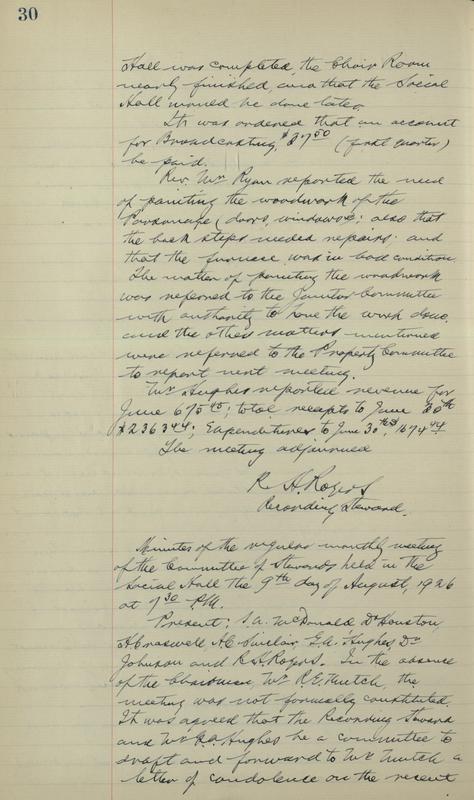 30
Hall was completed, the Choir Room
nearly finished, and that the Social
Hall would be done later.
It was ordered that an account
for Broadcasting, $87.50 (first quarter)
be paid.
Rev. Mr Ryan reported the need
of painting the woodwork of the
Parsonage (doors, windows; also that
the back steps needed repairs and
that the furnace was in bad condition.
The matter of painting the woodwork
was referred to the Janitor Committee
with authority to have the work done,
and the other matters mentioned
were referred to the Property Committee
to report next meeting.
Mr Hughes reported revenue for
June 675; total receipts to June 30th
$2363; Expenditures to June 30th, 1674 44
The meeting adjourned
R. H. Rogers
Recording Steward.
Minutes of the regular monthly meeting
of the Committee of Stewards held in the
Social Hall the 9th day of August, 1926
at 7 30 P.M.
Present: McDonald, Dr Houston,
H. Craswell, Sinclair, Hughes, Dr
Johnson and R. H. Rogers. In the absence
of the Chairman, Mr R. E. Mutch, the
meeting was not formally constituted.
It was agreed that the Recording Steward
and Mr Hughes be a committee to
draft and forward to Mr Mutch a
letter of condolence on the recent